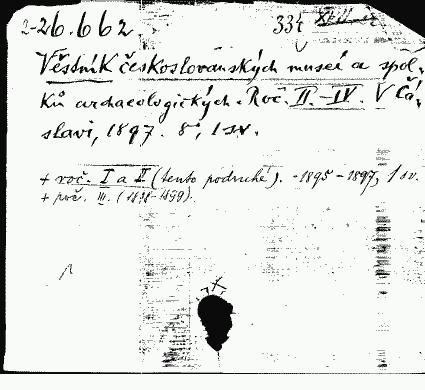 2-26.662. 334
Věstník českoslovanských museí a spol-
ků archaeologických. Roč. II.-IV. V Čá-
slavi, 1897. 8°, 1 sv.
+ roč. I a II (tento podruhé). -1895-1897, 1 sv.
+ roč. III. (1898-1899).